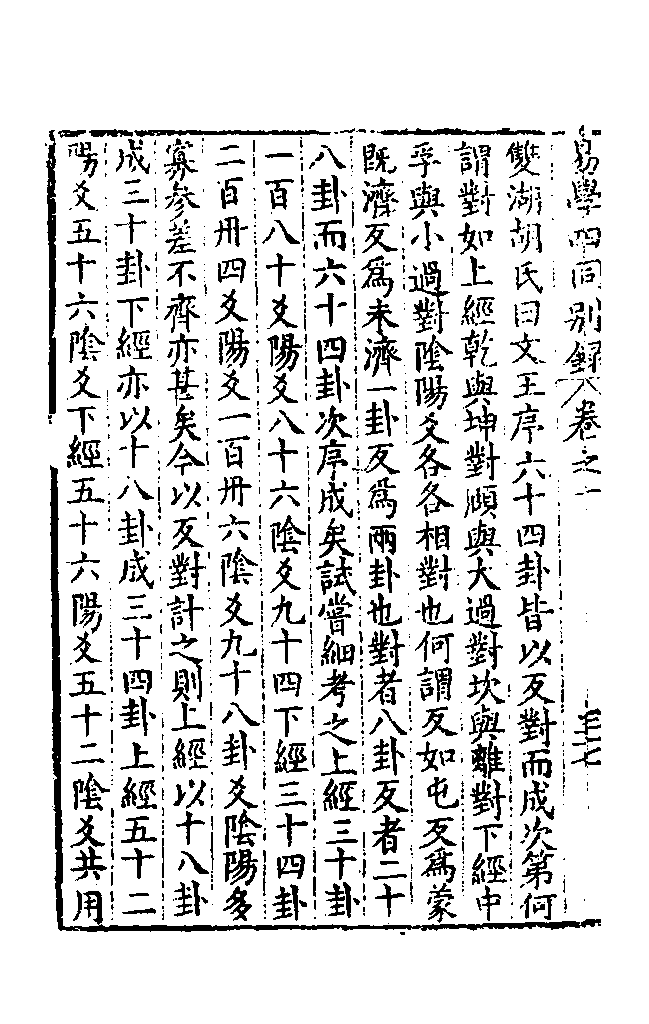 易學四同別錄 卷之一
雙湖胡氏曰文王序六十四卦皆以反對而成次第何
謂對如上經乾與坤對頤與大過對坎與離對下經中
孚與小過對陰陽爻各各相對也何謂反如屯反爲蒙
既濟反爲未濟一卦反爲兩卦也對者八卦反者二十
八卦而六十四卦次序成矣試嘗細考之上經三十卦
一百八十爻陽爻八十六陰爻九十四下經三十四卦
二百卅四爻陽爻一百卅六陰爻九十八卦爻陰陽多
寡參差不齊亦甚矣今以反對計之則上經以十八卦
成三十卦下經亦以十八卦成三十四卦上經五十二
陽爻五十六陰爻下經五十六陽爻五十二陰爻共用